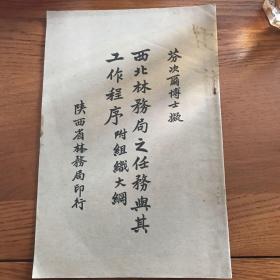 芬次爾博士擬
西北林務局之任務與其
工作程序附組織大綱
陝西省林務局印行